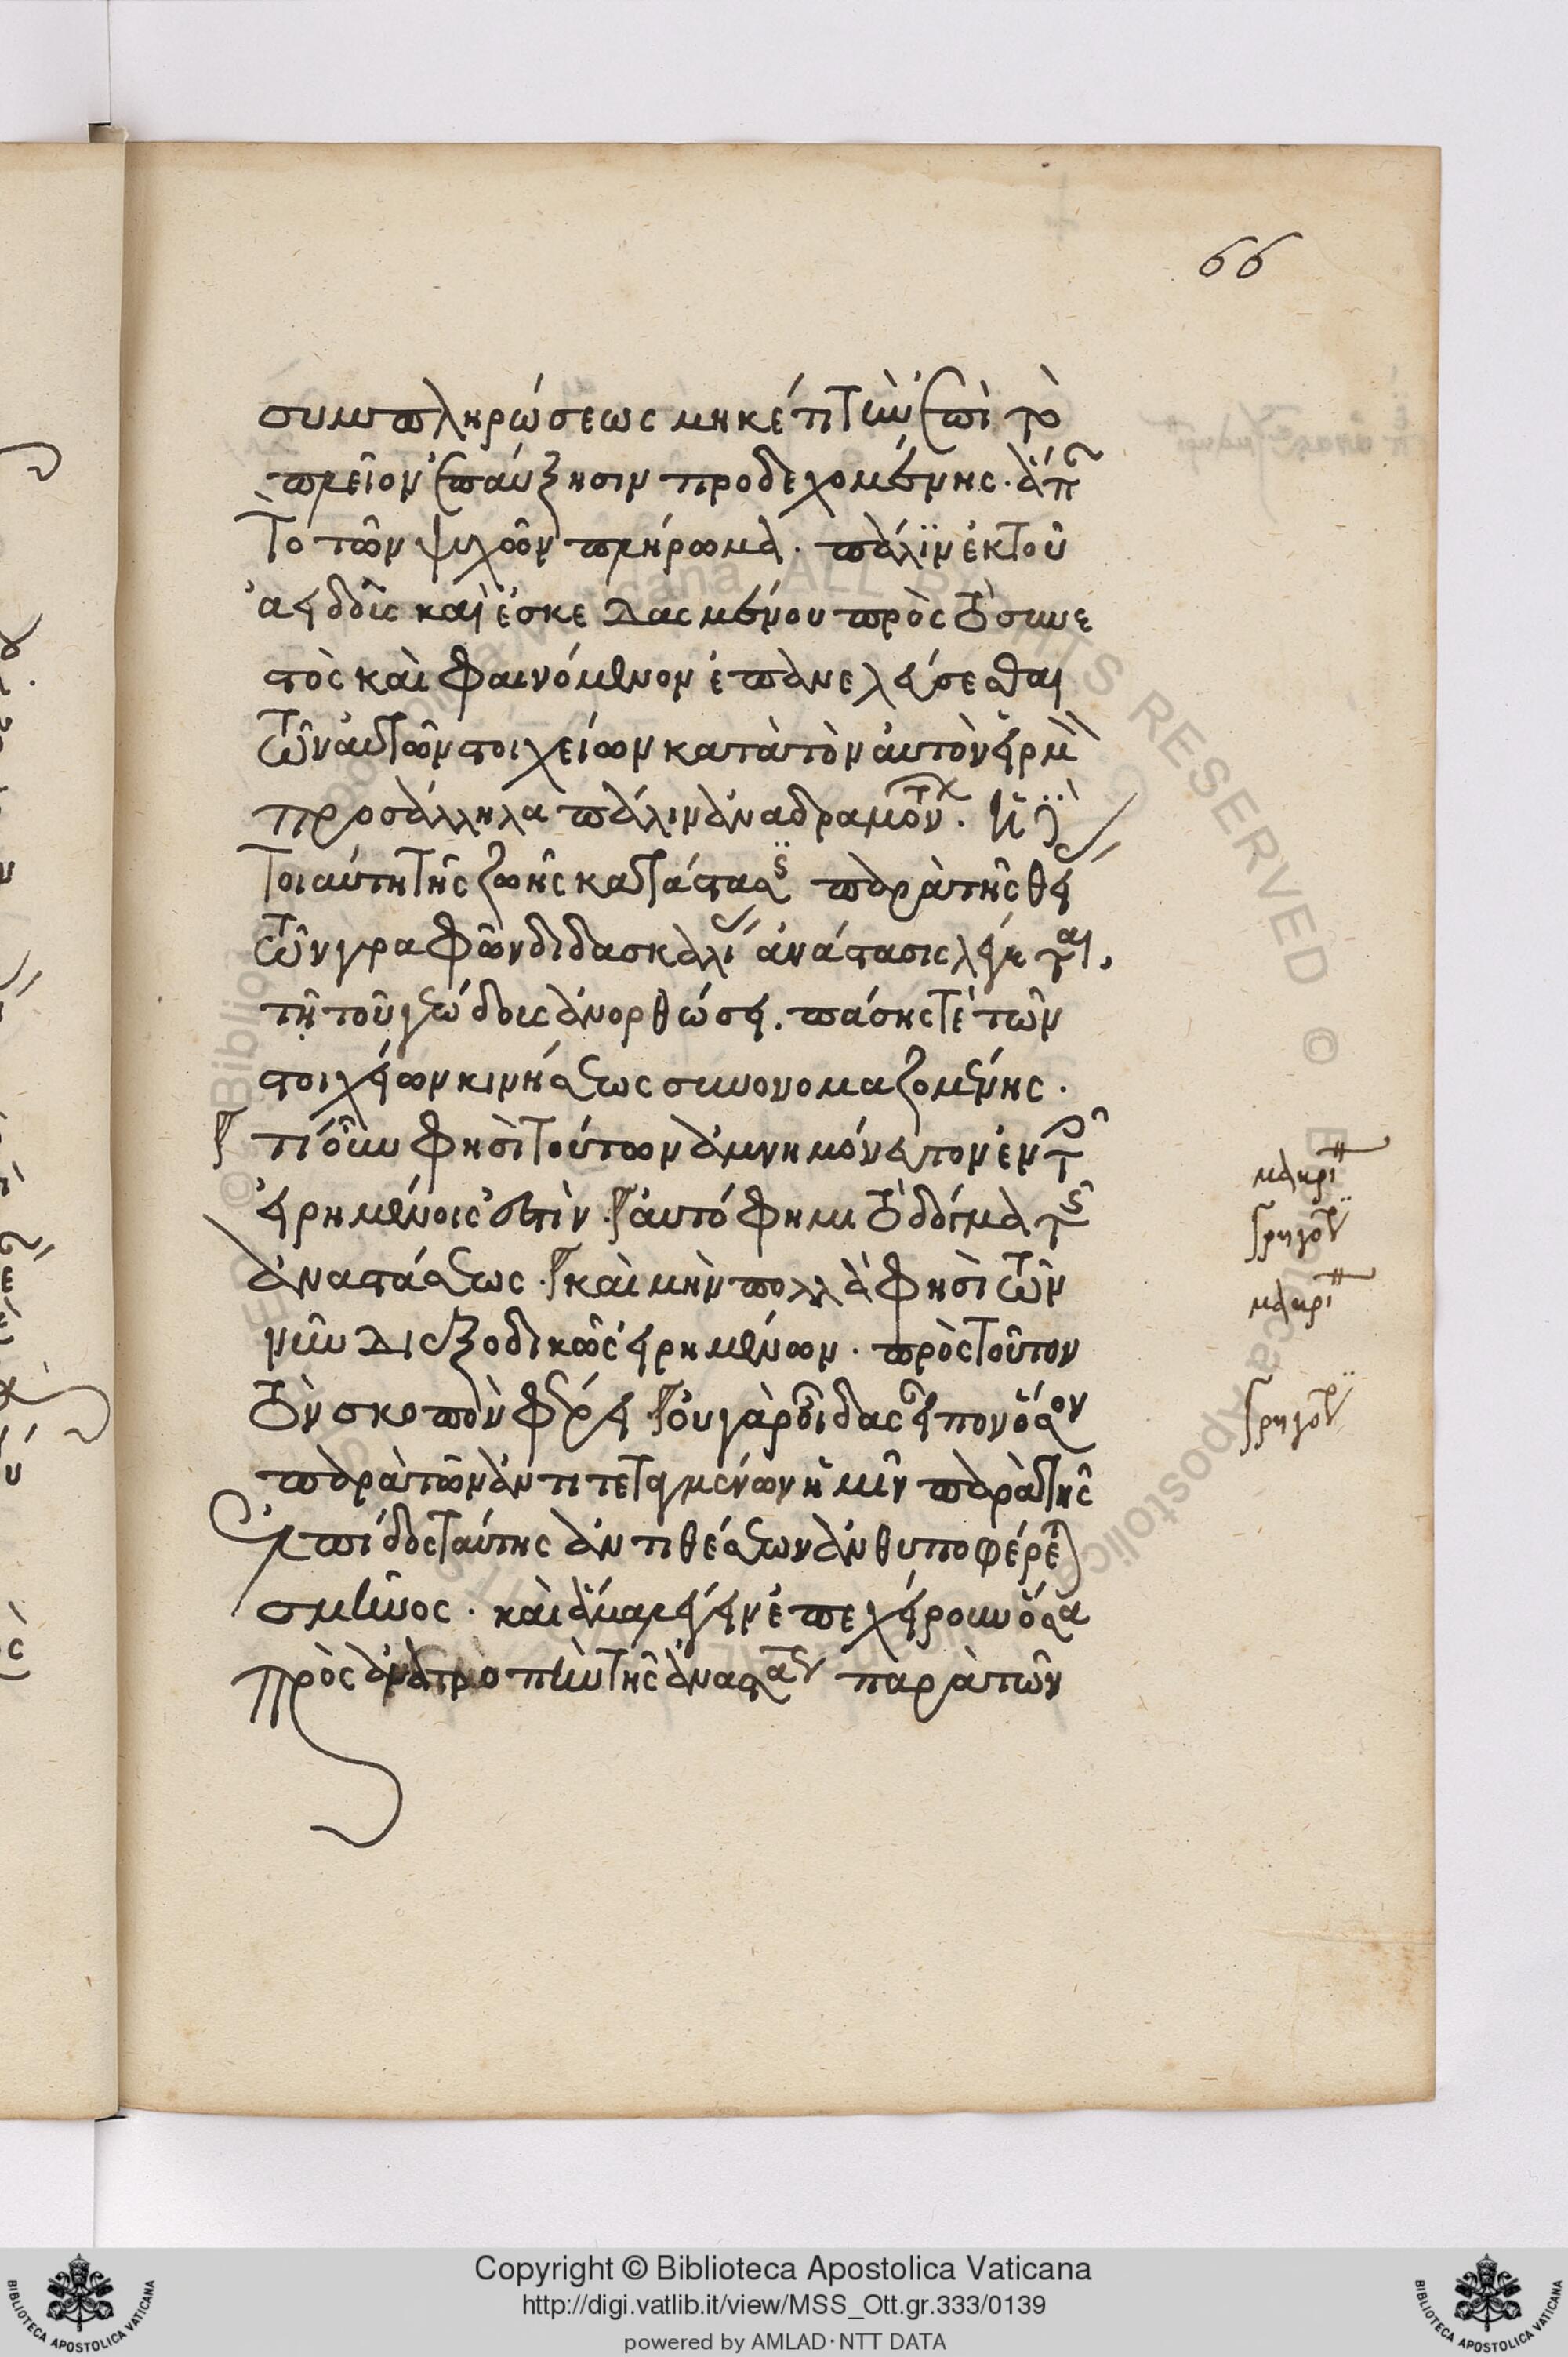 66
συμπληρώσεως μηκέτι τὴν ἐπὶ τὸ
πλεῖον ἐπαύξησιν προδεχομένης. ἅπαν
τὸ τῶν ψυχῶν πλήρωμα. πάλιν ἐκ τοῦ
ἀειδοῦς καὶ ἐσκεδασμένου πρὸς τὸ συνε
στὸς καὶ φαινόμενον ἐπανελεύσεσθαι
τῶν αὐτῶν στοιχείων κατὰ τὸν αὐτὸν εἱρμὸν
πρὸς ἄλληλα πάλιν ἀναδραμόντων. ἡ δὲ
τοιαύτη τῆς ζωῆς κατάστασις παρὰ τῆς θείας
τῶν γραφῶν διδασκαλίας ἀνάστασις λέγεται,
τῇ τοῦ γεώδους ἀνορθώσει. πάσης τὲ τῶν
στοιχείων κινήσεως συνονομαζομένης.
τί οὖν φησὶ τούτων ἀμνημόνευτον ἐν τοῖς
εἰρημένοις ἐστίν. αὐτό φημι τὸ δόγμα τῆς
ἀναστάσεως. καὶ μὴν πολλὰ φησὶ τῶν
νῦν διεξοδικῶς εἰρημένων. πρὸς τοῦτον
τὸν σκοπὸν φέρει οὐ γὰρ οἶδας εἶπον ὅσον
παρὰ τῶν ἀντιτεταγμένων ἡμῖν παρὰ τῆς
ἐλπίδος ταύτης ἀντιθέσεων ἀνθυποφέρεται
σμῆνος. καὶ ἅμα λέγειν ἐπεχείρουν ὅσα
πρὸς ἀνατροπὴν τῆς ἀναστάσεως παρὰ τῶν
μακρι
γρηγορ
μακρι
γρηγορ
Copyright © Biblioteca Apostolica Vaticana
http://digi.vatlib.it/view/MSS_Ott.gr.333/0139
powered by AMLAD·NTT DATA
BIBLIOTECA APOSTOLICA VATICANA
BIBLIOTECA APOSTOLICA VATICANA